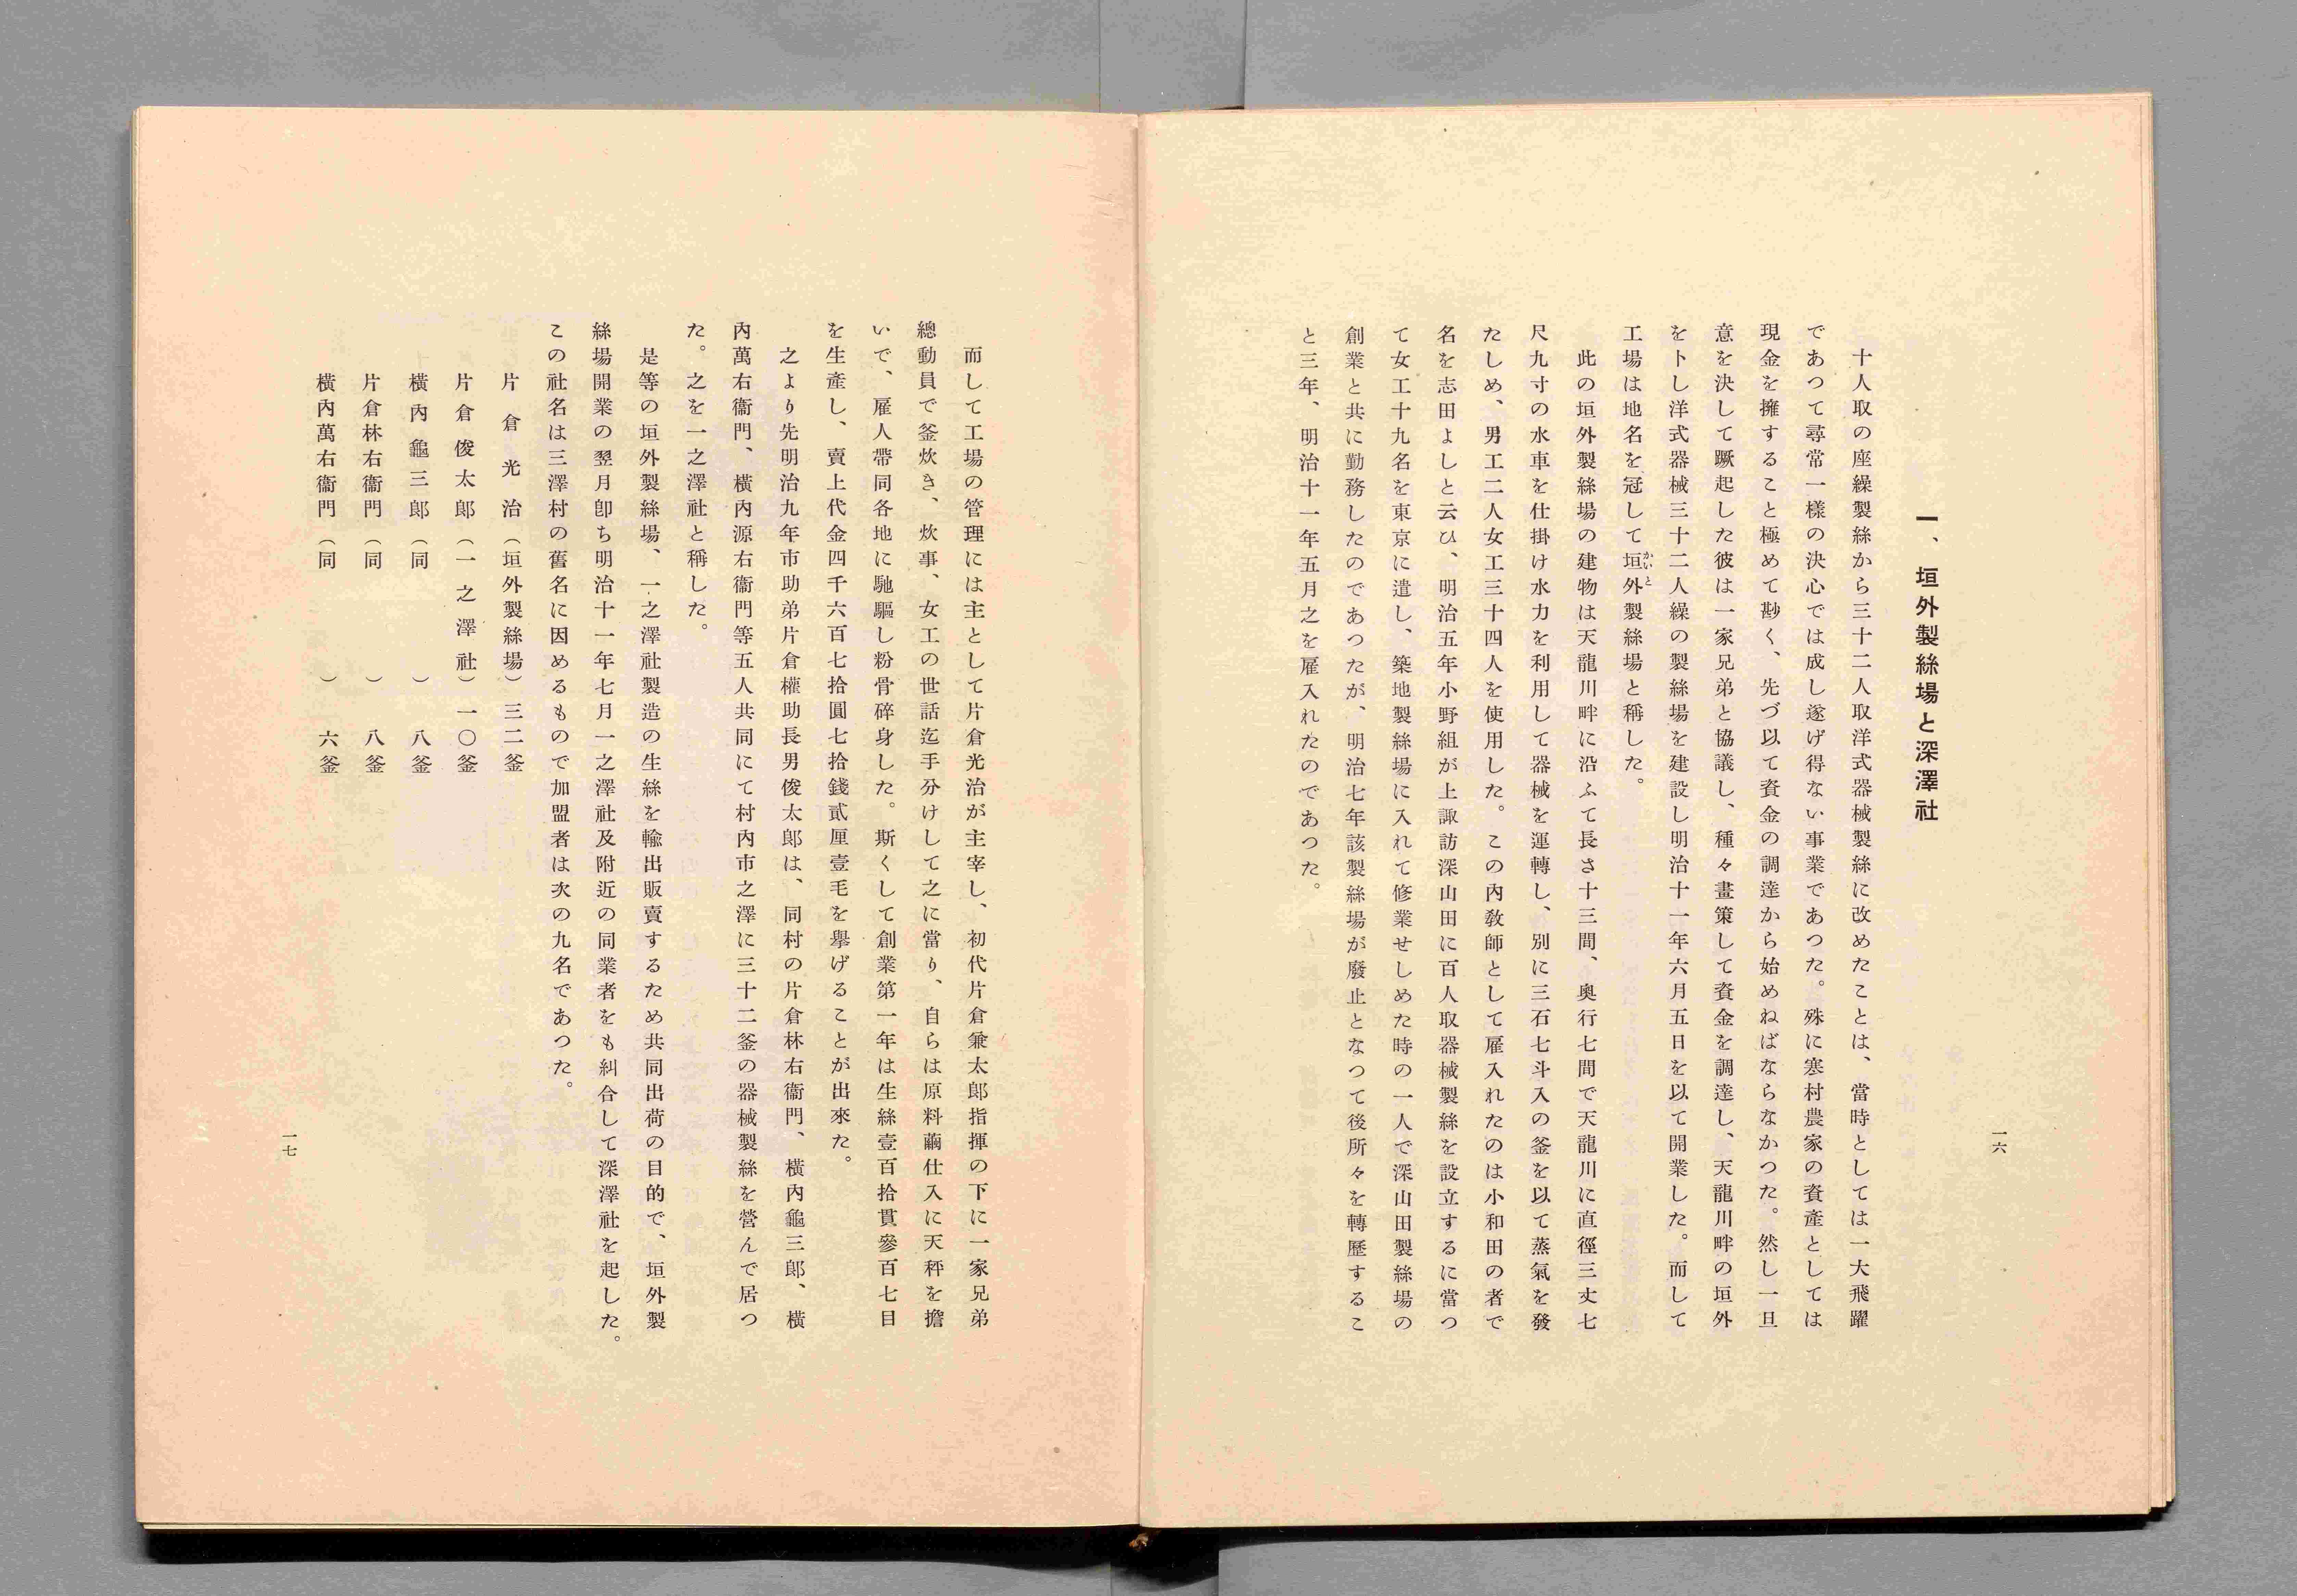 一、垣外製絲場と深澤社
十人取の座繰製絲から三十二人取洋式器械製絲に改めたことは、當時としては一大飛躍
であつて尋常一樣の決心では成し遂げ得ない事業であつた。殊に寒村農家の資產としては
現金を擁すること極めて尠く、先づ以て資金の調達から始めねばならなかつた。然し一旦
意を決して蹶起した彼は一家兄弟と協議し、種々畫策して資金を調達し、天龍川畔の垣外
を卜し洋式器械三十二人繰の製絲場を建設し明治十一年六月五日を以て開業した。而して
工場は地名を冠して垣外かいと製絲場と稱した。
此の垣外製絲場の建物は天龍川畔に沿ふて長さ十三間、奧行七間で天龍川に直徑三丈七
尺九寸の水車を仕掛け水力を利用して器械を運轉し、別に三石七斗入の釜を以て蒸氣を發
たしめ、男工二人女工三十四人を使用した。この內敎師として雇入れたのは小和田の者で
名を志田よしと云ひ、明治五年小野組が上諏訪深山田に百人取器械製絲を設立するに當つ
て女工十九名を東京に遣し、築地製絲場に入れて修業せしめた時の一人で深山田製絲場の
創業と共に勤務したのであつたが、明治七年該製絲場が廢止となつて後所々を轉歷するこ
と三年、明治十一年五月之を雇入れたのであつた。
一六
而して工場の管理には主として片倉光治が主宰し、初代片倉兼太郞指揮の下に一家兄弟
總動員で釜炊き、炊事、女工の世話迄手分けして之に當り、自らは原料繭仕入に天秤を擔
いで、雇人帶同各地に馳驅し粉骨碎身した。斯くして創業第一年は生絲壹百拾貫參百七目
を生產し、賣上代金四千六百七拾圓七拾錢貳厘壹毛を擧げることが出來た。
之より先明治九年市助弟片倉權助長男俊太郞は、同村の片倉林右衞門、橫內龜三郞、橫
內萬右衞門、橫內源右衞門等五人共同にて村內市之澤に三十二釜の器械製絲を營んで居つ
た。之を一之澤社と稱した。
是等の垣外製絲場、一之澤社製造の生絲を輸出販賣するため共同出荷の目的で、垣外製
絲場開業の翌月卽ち明治十一年七月一之澤社及附近の同業者をも糾合して深澤社を起した。
この社名は三澤村の舊名に因めるもので加盟者は次の九名であつた。
片倉光治（垣外製絲場）三二釜
片倉俊太郞（一之澤社）一〇釜
橫內龜三郞（同）八釜
片倉林右衞門（同）八釜
橫內萬右衞門（同）六釜
一七